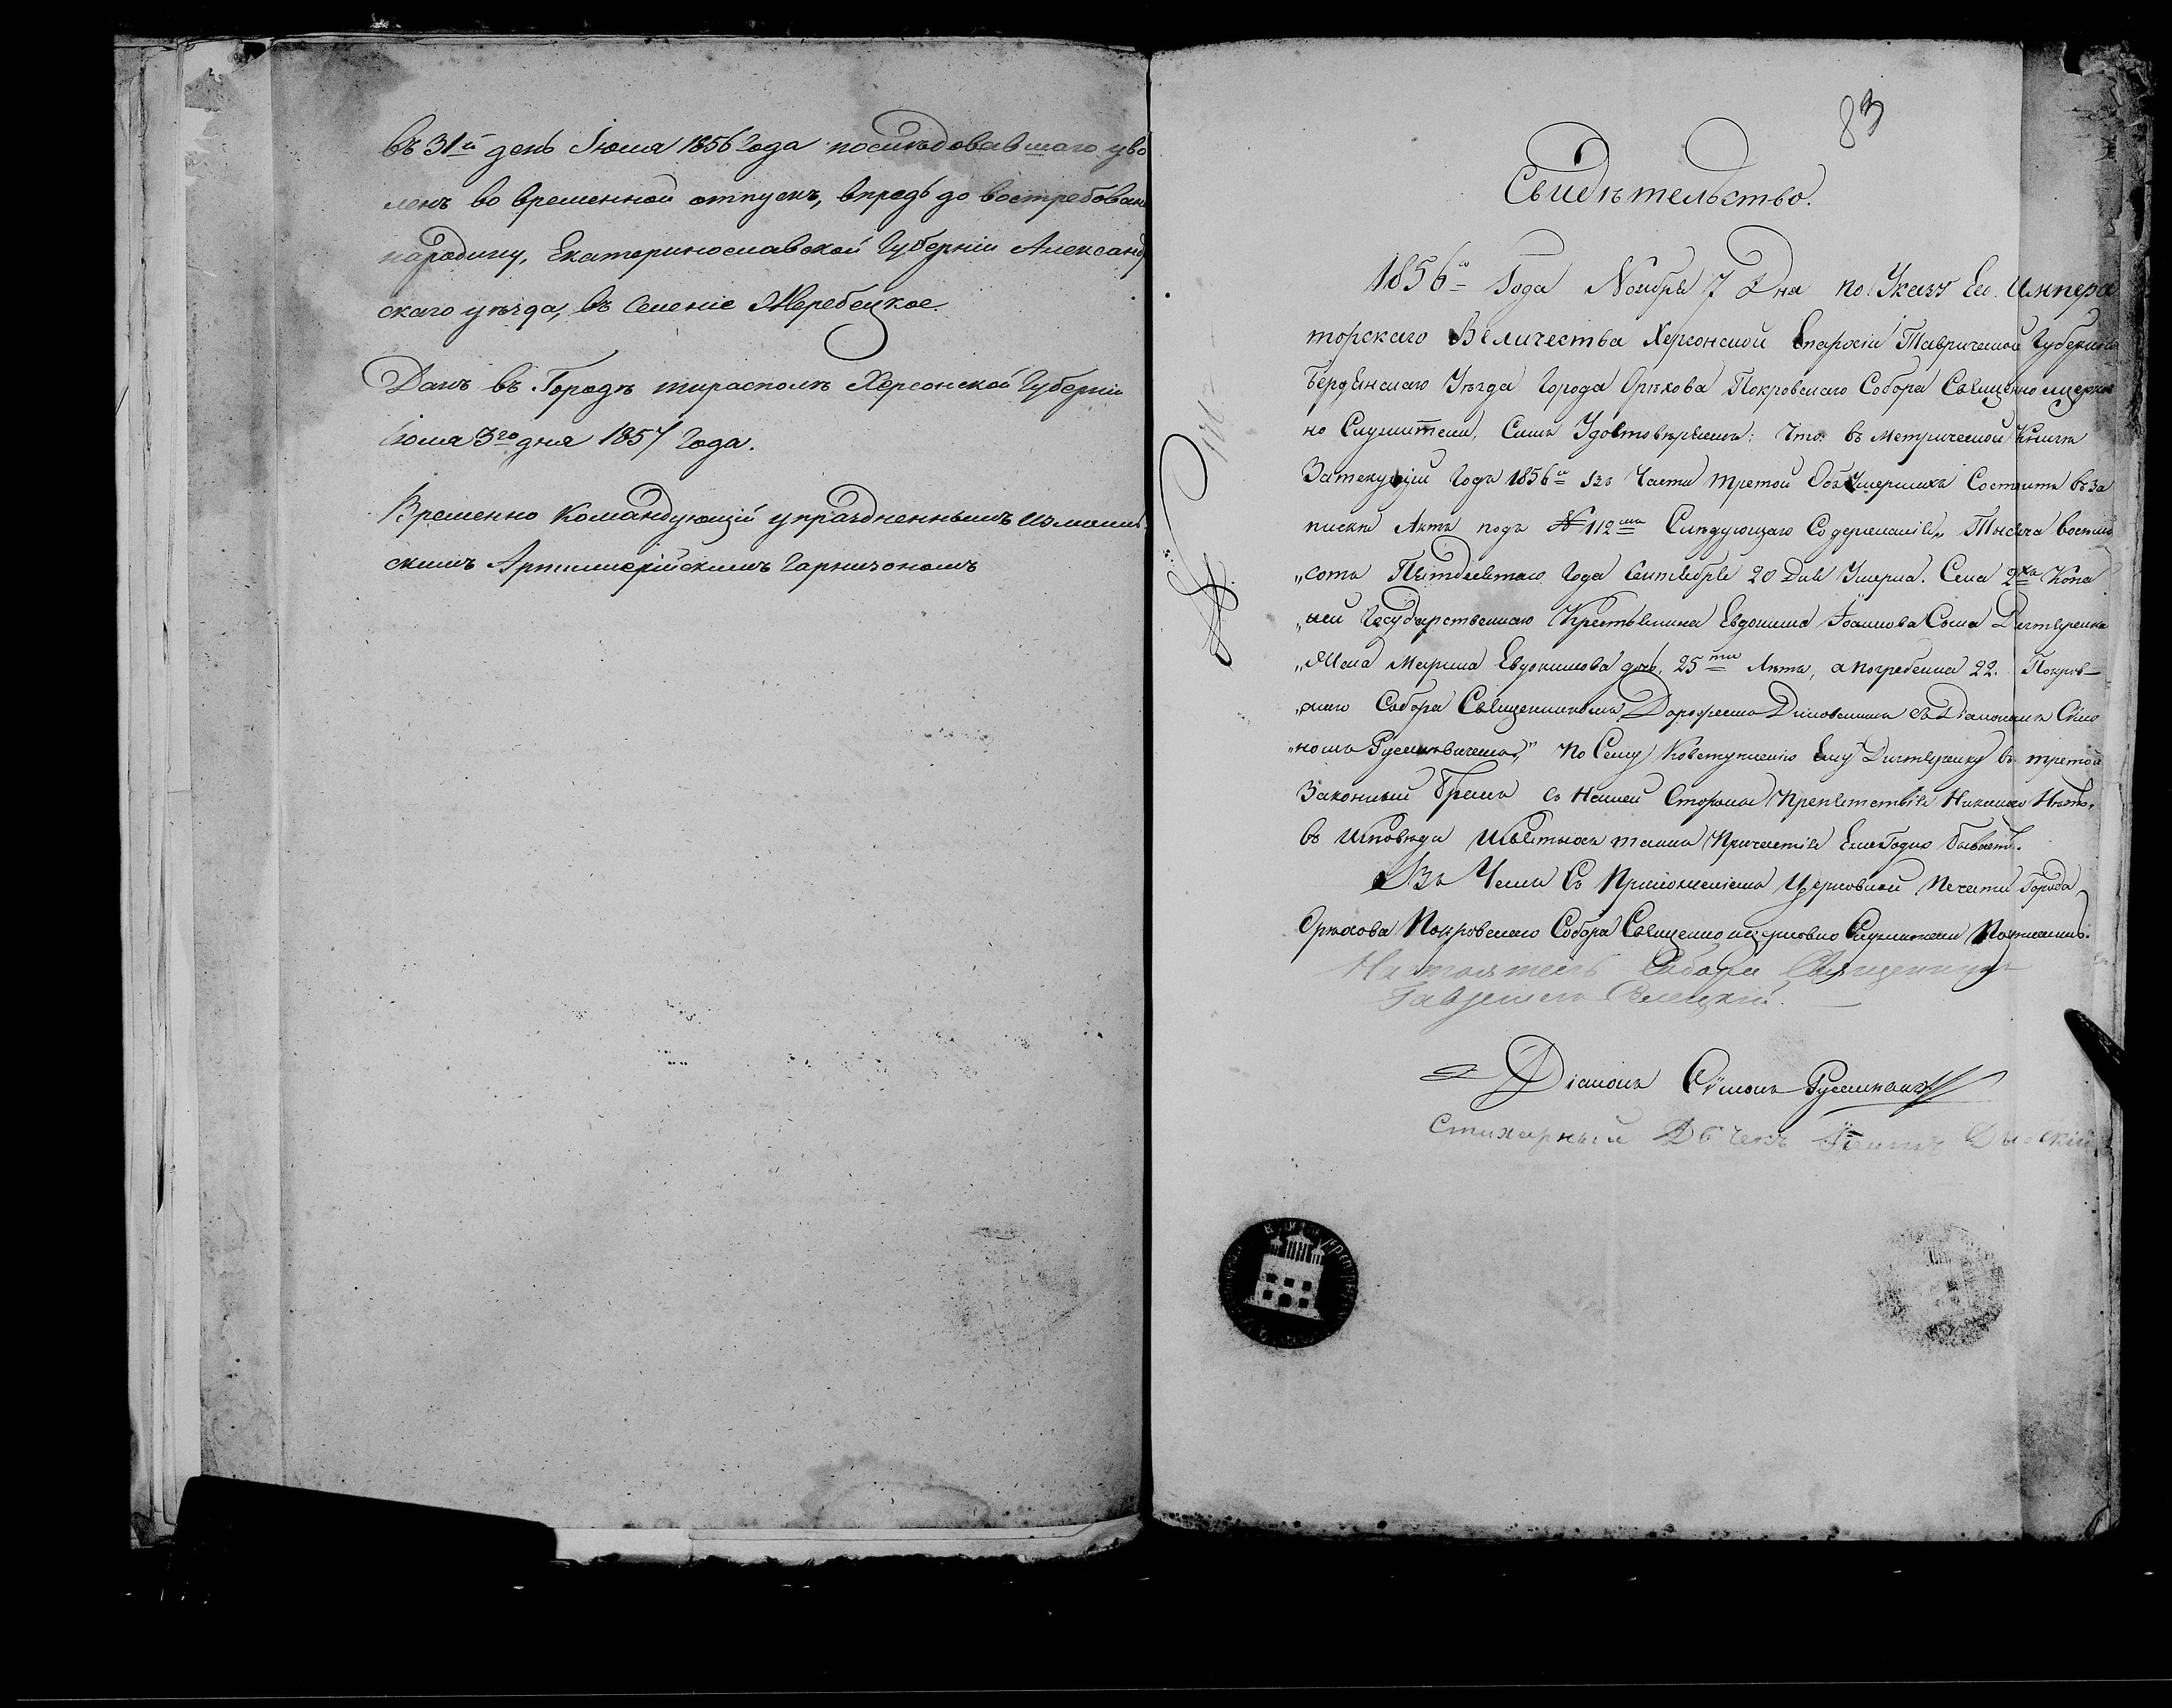 въ 31й день Іюля 1856 года последовавшаго уво
ленъ во временной отпускъ, впредь до востребован
народину, Екатеринославской Губерніи Александ
скаго уѣзда, въ Селеніе Жеребецкое.
Данъ въ Городѣ тирасполѣ Херсонской Губерніи
Іюля 3го дня 1857 года.
Временно Командующій упраздненнымъ Измаиль
скимъ Артиллерійскимъ Гарнизономъ
83
Свидѣтельство.
1856го Года Ноября 7 Дня по Указу Его Импера
торскаго Величества Херсонской Епархіи Таврической Губерніи
Бердянскаго Уѣзда Города Орѣхова Покровскаго Собора Священно и церков
но Служители, Симъ Удостовѣряемъ: Что въ Метрической Книгѣ
За текущій Годъ 1856й въ Части третой Объ Умершихъ Состоитъ въ за
пискѣ Актъ подъ № 112мъ Слѣдующаго Содержанія „Тысяча восемь
„сотъ Пятдесятаго Года Сентября 20 Дня Умерла. Села 2хъ Копа
„ней Государственнаго Крестьянина Евдокима Іоаннова Сына Дигтяренка
„Жена Марина Евдокимова дочь, 25ти Лѣтъ, а погребенна 22. Покров-
„скаго Собора Священникомъ Дорофеемъ съ Діакономъ Сімо
„номъ Русиновичемъ,” По Сему Ковступленію Ему Дигтяренку въ третой
Законный Бракъ Съ Нашей Стороны Препятствія Никакого Нѣтъ,
въ Исповѣди И Святыхъ таинъ Причастія Ежегодно бываетъ.
Въ Чемъ Съ Приложеніемъ Церковной Печати Города
Орѣхова Покровскаго Собора Священно и церковно Служители
Настоятель Собора Священникъ
Гавріилъ
Діаконъ Сімонъ
Стихарный Дьячекъ